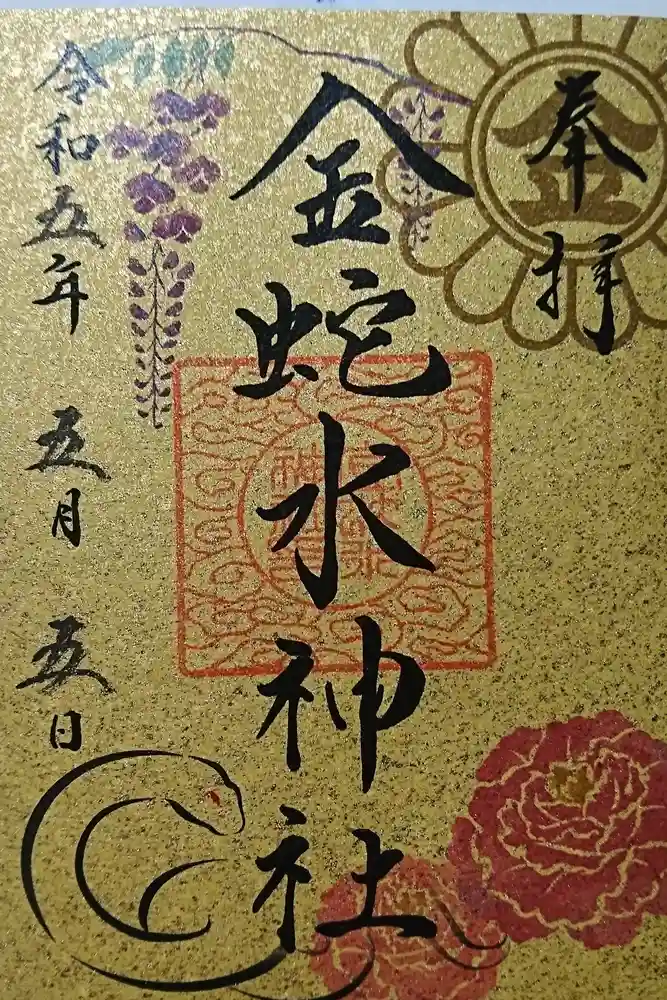 奉拝
金
金蛇水神社
令和五年 五月 五日